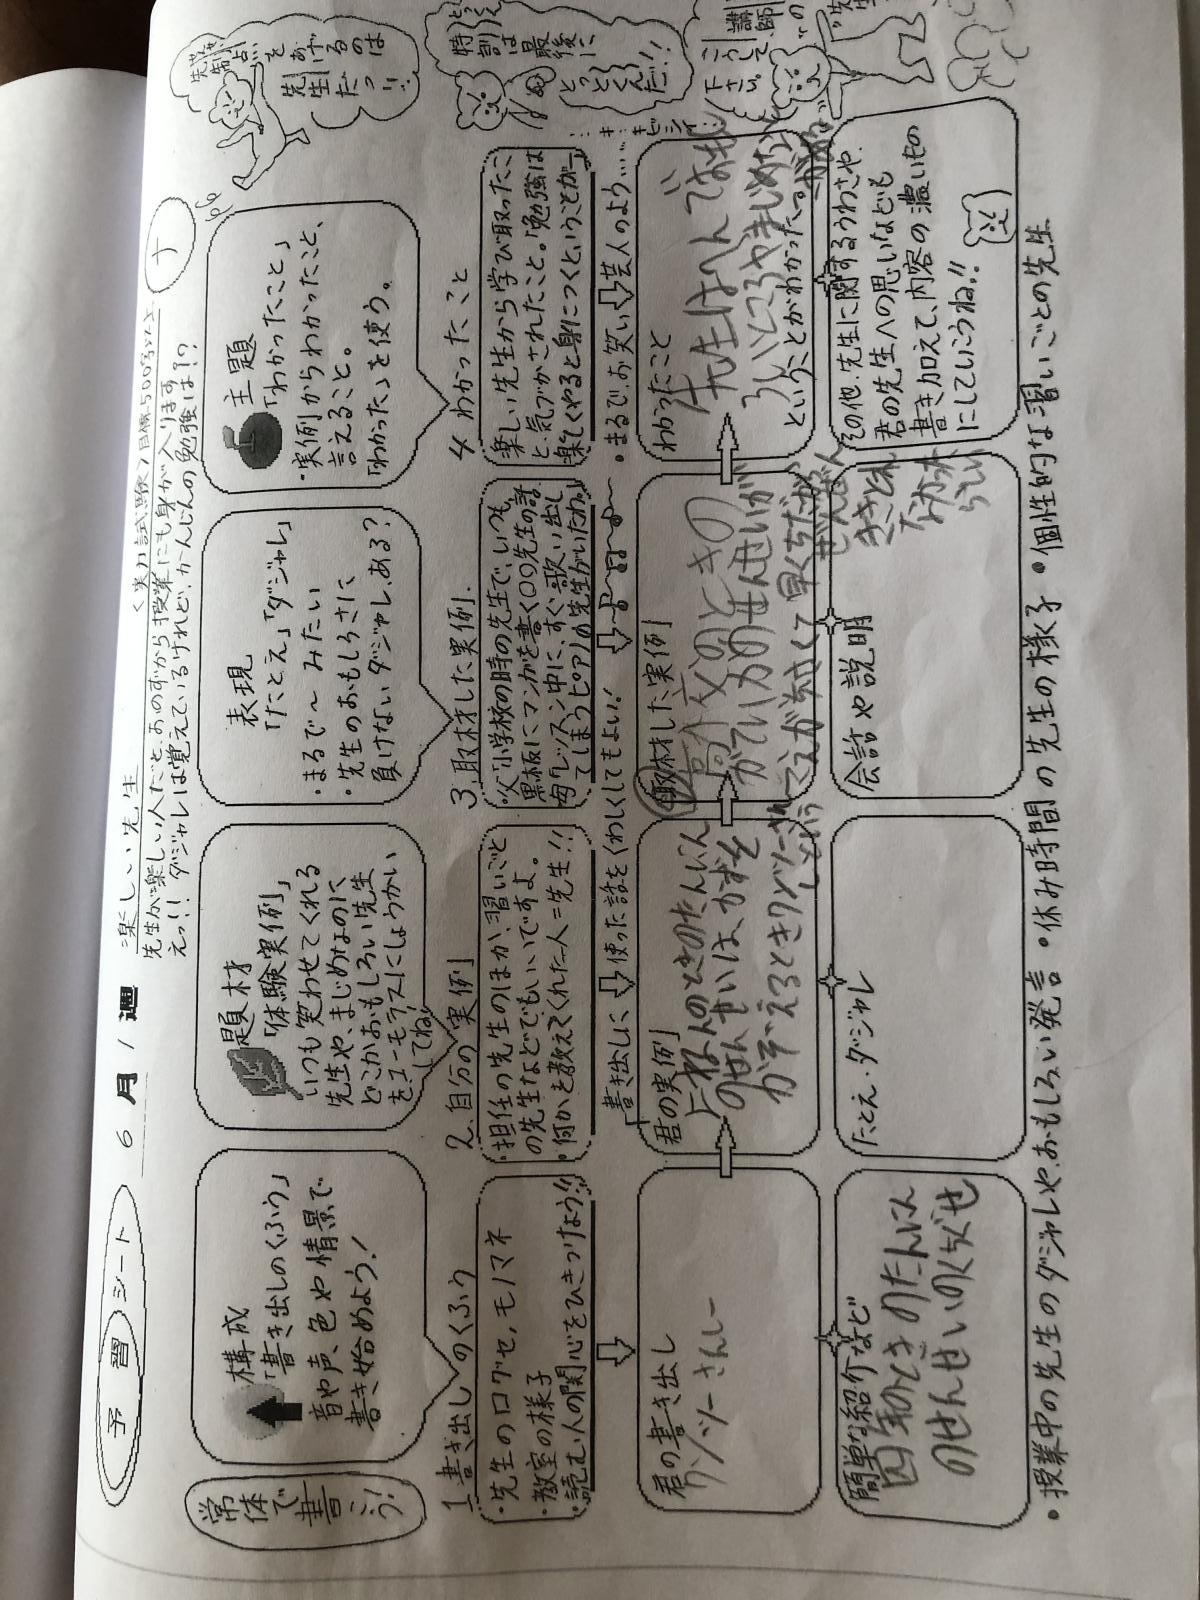 予習シート
6月1週
楽しい先生
<実力試験>目標500字以上
先生が楽しい人だと、おのずから授業にも身が入ります
えっ!! ダジャレは覚えているけれど、かんじんの勉強は!?
常体で書こう!
構成
「書き出しのくふう」
音や声、色や情景で
書き始めよう!
題材
「体験実例」
いつも笑わせてくれる
先生や、まじめなのに
どこかおもしろい先生
をユーモラスにしょうかい
してね!
表現
「たとえ」「ダジャレ」
・まるで〜みたい
・先生のおもしろさに
負けないダジャレ、ある?
主題
「わかったこと」
・実例からわかったこと、
言えること。
「わかった」を使う。
先取り点を
あげるのは
先生だっ!!
特訓は最後に
とっとくんだ!!
1 書き出しのくふう
・先生の口グセ、モノマネ
・教室の様子
・読む人の関心をひきつけよう!!
2 自分の実例
・担任の先生のほか、習いごと
の先生などでもいいですよ。
・何かを教えてくれた人=先生!!
3 取材した実例
・父「小学校の時の先生で、いつも
黒板にマンガを書く〇〇先生の話
母「レッスン中に、すぐ歌い出し
てしまうピアノの先生がいたわ。」
4 わかったこと
楽しい先生から学び取ったこ
と、気づかされたこと。「勉強は
楽しくやると身につくということが…」
書き出しに使った話をくわしくしてもよい!
・まるでお笑い芸人のよう……
君の書き出し
ワンツーさんしー
君の実例
のせんせいは、かずを
かぞえるときワンツーさん
しという
取材した実例
高校の時の
かていかのせんせいが
こえが小さくて早くちだから
ぜんぜん
ききとれ
なかった
らしい
わかったこと
先生はへんでおもし
ろいところやまじめなと
ということがわかった。
簡単な紹介など
四年のときのたんにん
のせんせいのくちぐせ
たとえ・ダジャレ
会話や説明
その他、先生に関するうわさや、
君の先生への思いなども
書き加えて、内容の濃いもの
にしていこうね!!
・授業中の先生のダジャレや、おもしろい発言 ・休み時間の先生の様子 ・個性的な習いごとの先生